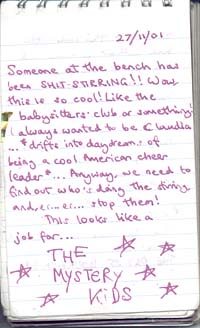 27/11/01
Someone at the bench has
been SHIT-STIRRING!! Wow
this is so cool! Like the
babysitters' club or something!
I always wanted to be Claudia
...*drifts into daydreams of
being a cool American cheer
leader*... Anyway, we need to
find out who's doing the stirring
and, er... er... stop them!
This looks like a
job for...
THE
MYSTERY
KiDS